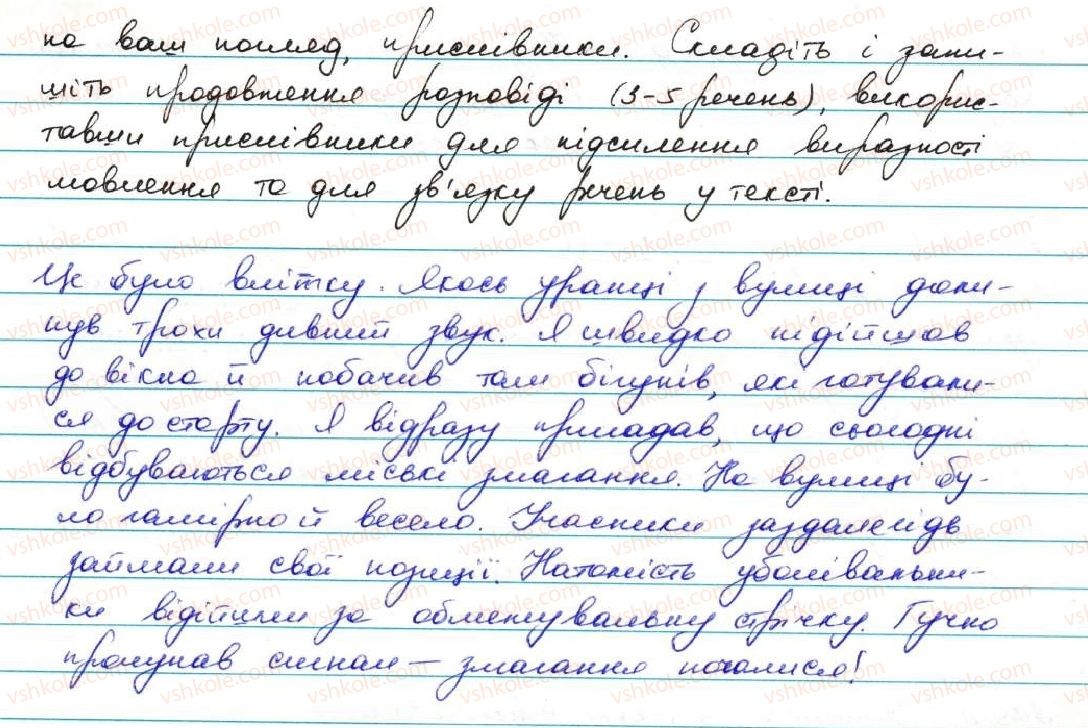 на ваш погляд, прислівники. Складіть і запи-
шіть продовження розповіді (3-5 речень), викорис-
тавши прислівники для підсилення виразності
мовлення та для зв'язку речень у тексті.
Це було влітку. Якось уранці з вулиці доли-
нув трохи дивний звук. Я швидко підійшов
до вікна й побачив там бігунів, які готували-
ся до старту. Я відразу пригадав, що сьогодні
відбуваються міські змагання. На вулиці бу-
ло гамірно й весело. Учасники заздалегідь
займали свої позиції. Натомість уболівальни-
ки відійшли за обмежувальну стрічку. Гучно
пролунав сигнал – змагання почалися!